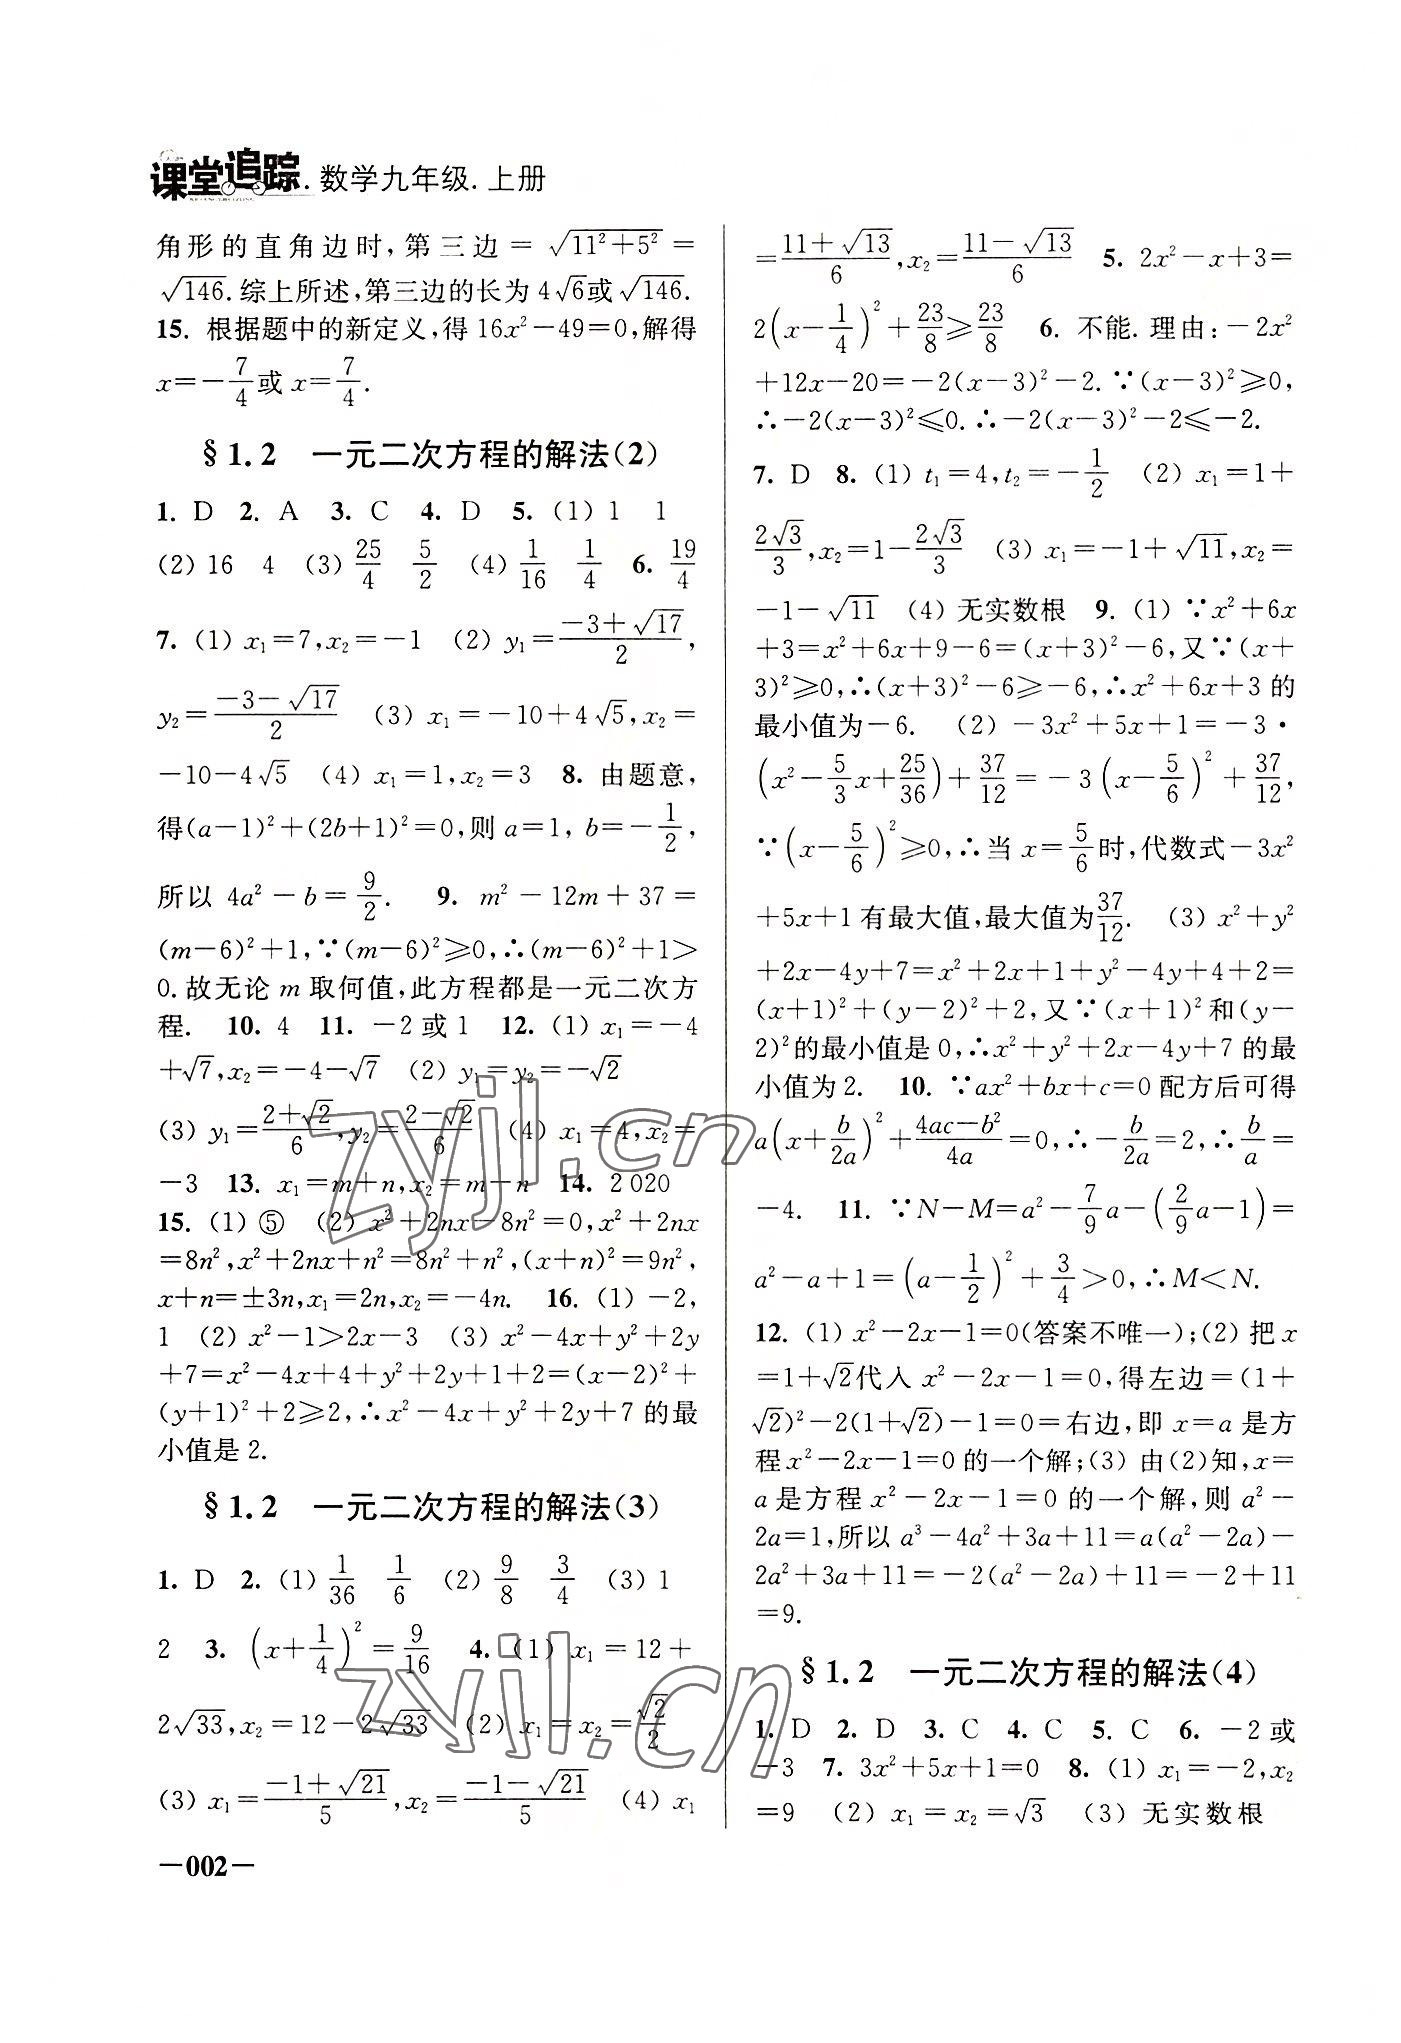 课堂追踪.数学九年级.上册
角形的直角边时,第三边=√(11²+5²)=
√146.综上所述,第三边的长为4√6或√146.
15. 根据题中的新定义,得16x²-49=0,解得
x=-7/4或x=7/4.
§1.2 一元二次方程的解法(2)
1. D 2. A 3. C 4. D 5. (1) 1 1
(2) 16 4 (3) 25/4 5/2 (4) 1/16 1/4 6. 19/4
7. (1) x₁=7,x₂=-1 (2) y₁=(-3+√17)/2,
y₂=(-3-√17)/2 (3) x₁=-10+4√5,x₂=
-10-4√5 (4) x₁=1,x₂=3 8. 由题意,
得(a-1)²+(2b+1)²=0,则a=1, b=-1/2,
所以 4a²-b=9/2. 9. m²-12m+37=
(m-6)²+1,∵(m-6)²≥0,∴(m-6)²+1>
0.故无论m取何值,此方程都是一元二次方
程. 10. 4 11. -2或1 12. (1) x₁=-4
+√7,x₂=-4-√7 (2) y₁=y₂=-√2
(3) y₁=(2+√2)/6,y₂=(2-√2)/6 (4) x₁=4,x₂=
-3 13. x₁=m+n,x₂=m-n 14. 2 020
15. (1) ⑤ (2) x²+2nx-8n²=0,x²+2nx
=8n²,x²+2nx+n²=8n²+n²,(x+n)²=9n²,
x+n=±3n,x₁=2n,x₂=-4n. 16. (1) -2,
1 (2) x²-1>2x-3 (3) x²-4x+y²+2y
+7=x²-4x+4+y²+2y+1+2=(x-2)²+
(y+1)²+2≥2,∴x²-4x+y²+2y+7的最
小值是2.
§1.2 一元二次方程的解法(3)
1. D 2. (1) 1/36 1/6 (2) 9/8 3/4 (3) 1
2 3. (x+1/4)²=9/16 4. (1) x₁=12+
2√33,x₂=12-2√33 (2) x₁=x₂=√2/2
(3) x₁=(-1+√21)/5,x₂=(-1-√21)/5 (4) x₁
=(11+√13)/6,x₂=(11-√13)/6 5. 2x²-x+3=
2(x-1/4)²+23/8≥23/8 6. 不能.理由:-2x²
+12x-20=-2(x-3)²-2.∵(x-3)²≥0,
∴-2(x-3)²≤0.∴-2(x-3)²-2≤-2.
7. D 8. (1) t₁=4,t₂=-1/2 (2) x₁=1+
2√3/3,x₂=1-2√3/3 (3) x₁=-1+√11,x₂=
-1-√11 (4) 无实数根 9. (1) ∵x²+6x
+3=x²+6x+9-6=(x+3)²-6,又∵(x+
3)²≥0,∴(x+3)²-6≥-6,∴x²+6x+3的
最小值为-6. (2) -3x²+5x+1=-3·
(x²-5/3x+25/36)+37/12=-3(x-5/6)²+37/12,
∵(x-5/6)²≥0,∴当x=5/6时,代数式-3x²
+5x+1有最大值,最大值为37/12. (3) x²+y²
+2x-4y+7=x²+2x+1+y²-4y+4+2=
(x+1)²+(y-2)²+2,又∵(x+1)²和(y-
2)²的最小值是0,∴x²+y²+2x-4y+7的最
小值为2. 10. ∵ax²+bx+c=0配方后可得
a(x+b/2a)²+(4ac-b²)/4a=0,∴-b/2a=2,∴b/a=
-4. 11. ∵N-M=a²-7/9a-(2/9a-1)=
a²-a+1=(a-1/2)²+3/4>0,∴M<N.
12. (1) x²-2x-1=0(答案不唯一);(2) 把x
=1+√2代入x²-2x-1=0,得左边=(1+
√2)²-2(1+√2)-1=0=右边,即x=a是方
程x²-2x-1=0的一个解;(3) 由(2)知,x=
a是方程x²-2x-1=0的一个解,则a²-
2a=1,所以a³-4a²+3a+11=a(a²-2a)-
2a²+3a+11=-2(a²-2a)+11=-2+11
=9.
§1.2 一元二次方程的解法(4)
1. D 2. D 3. C 4. C 5. C 6. -2或
-3 7. 3x²+5x+1=0 8. (1) x₁=-2,x₂
=9 (2) x₁=x₂=√3 (3) 无实数根
—002—
zyjl.cn
zyjl.cn